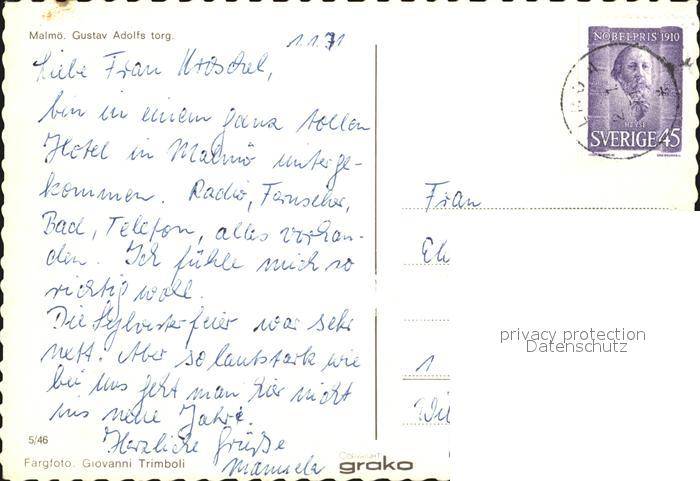 Malmö. Gustav Adolfs torg.
1.1.71
Liebe Frau
bin in einem ganz tollen
Hotel in Malmö unterge-
kommen. Radio, Fernseher,
Bad, Telefon, alles vorhan-
den. Ich fühle mich so
richtig wohl.
Die Sylvesterfeier war sehr
nett. Aber so lautstark wie
bei uns geht man hier nicht
ins neue Jahr.
Herzliche Grüße
Manuela
5/46
Färgfoto. Giovanni Trimboli
COPYRIGHT
grako
NOBELPRIS 1910
HEYSE
SVERIGE 45
Frau
1
privacy protection
Datenschutz